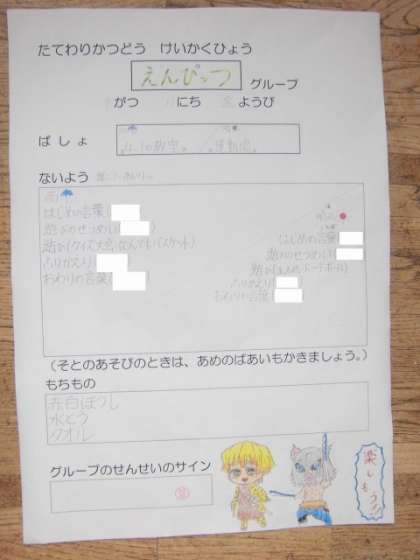 たてわりかつどう けいかくひょう
えんぴっつ グループ
がつ にち ようび
ばしょ 4.1の教室。 運動場。
ないよう
雨
はじめの言葉(
遊びのせつめい( )
遊び(クイズ大会 なんでもバスケット)
ふりかえり(
おわりの言葉(
晴れ
(はじめの言葉(
遊びのせつめい(
遊び( ドッチボール)
ふりかえり(
おわりの言葉(
(そとのあそびのときは、あめのばあいもかきましょう。)
もちもの
赤白ぼうし
水とう
タオル
グループのせんせいのサイン
楽しもうっ